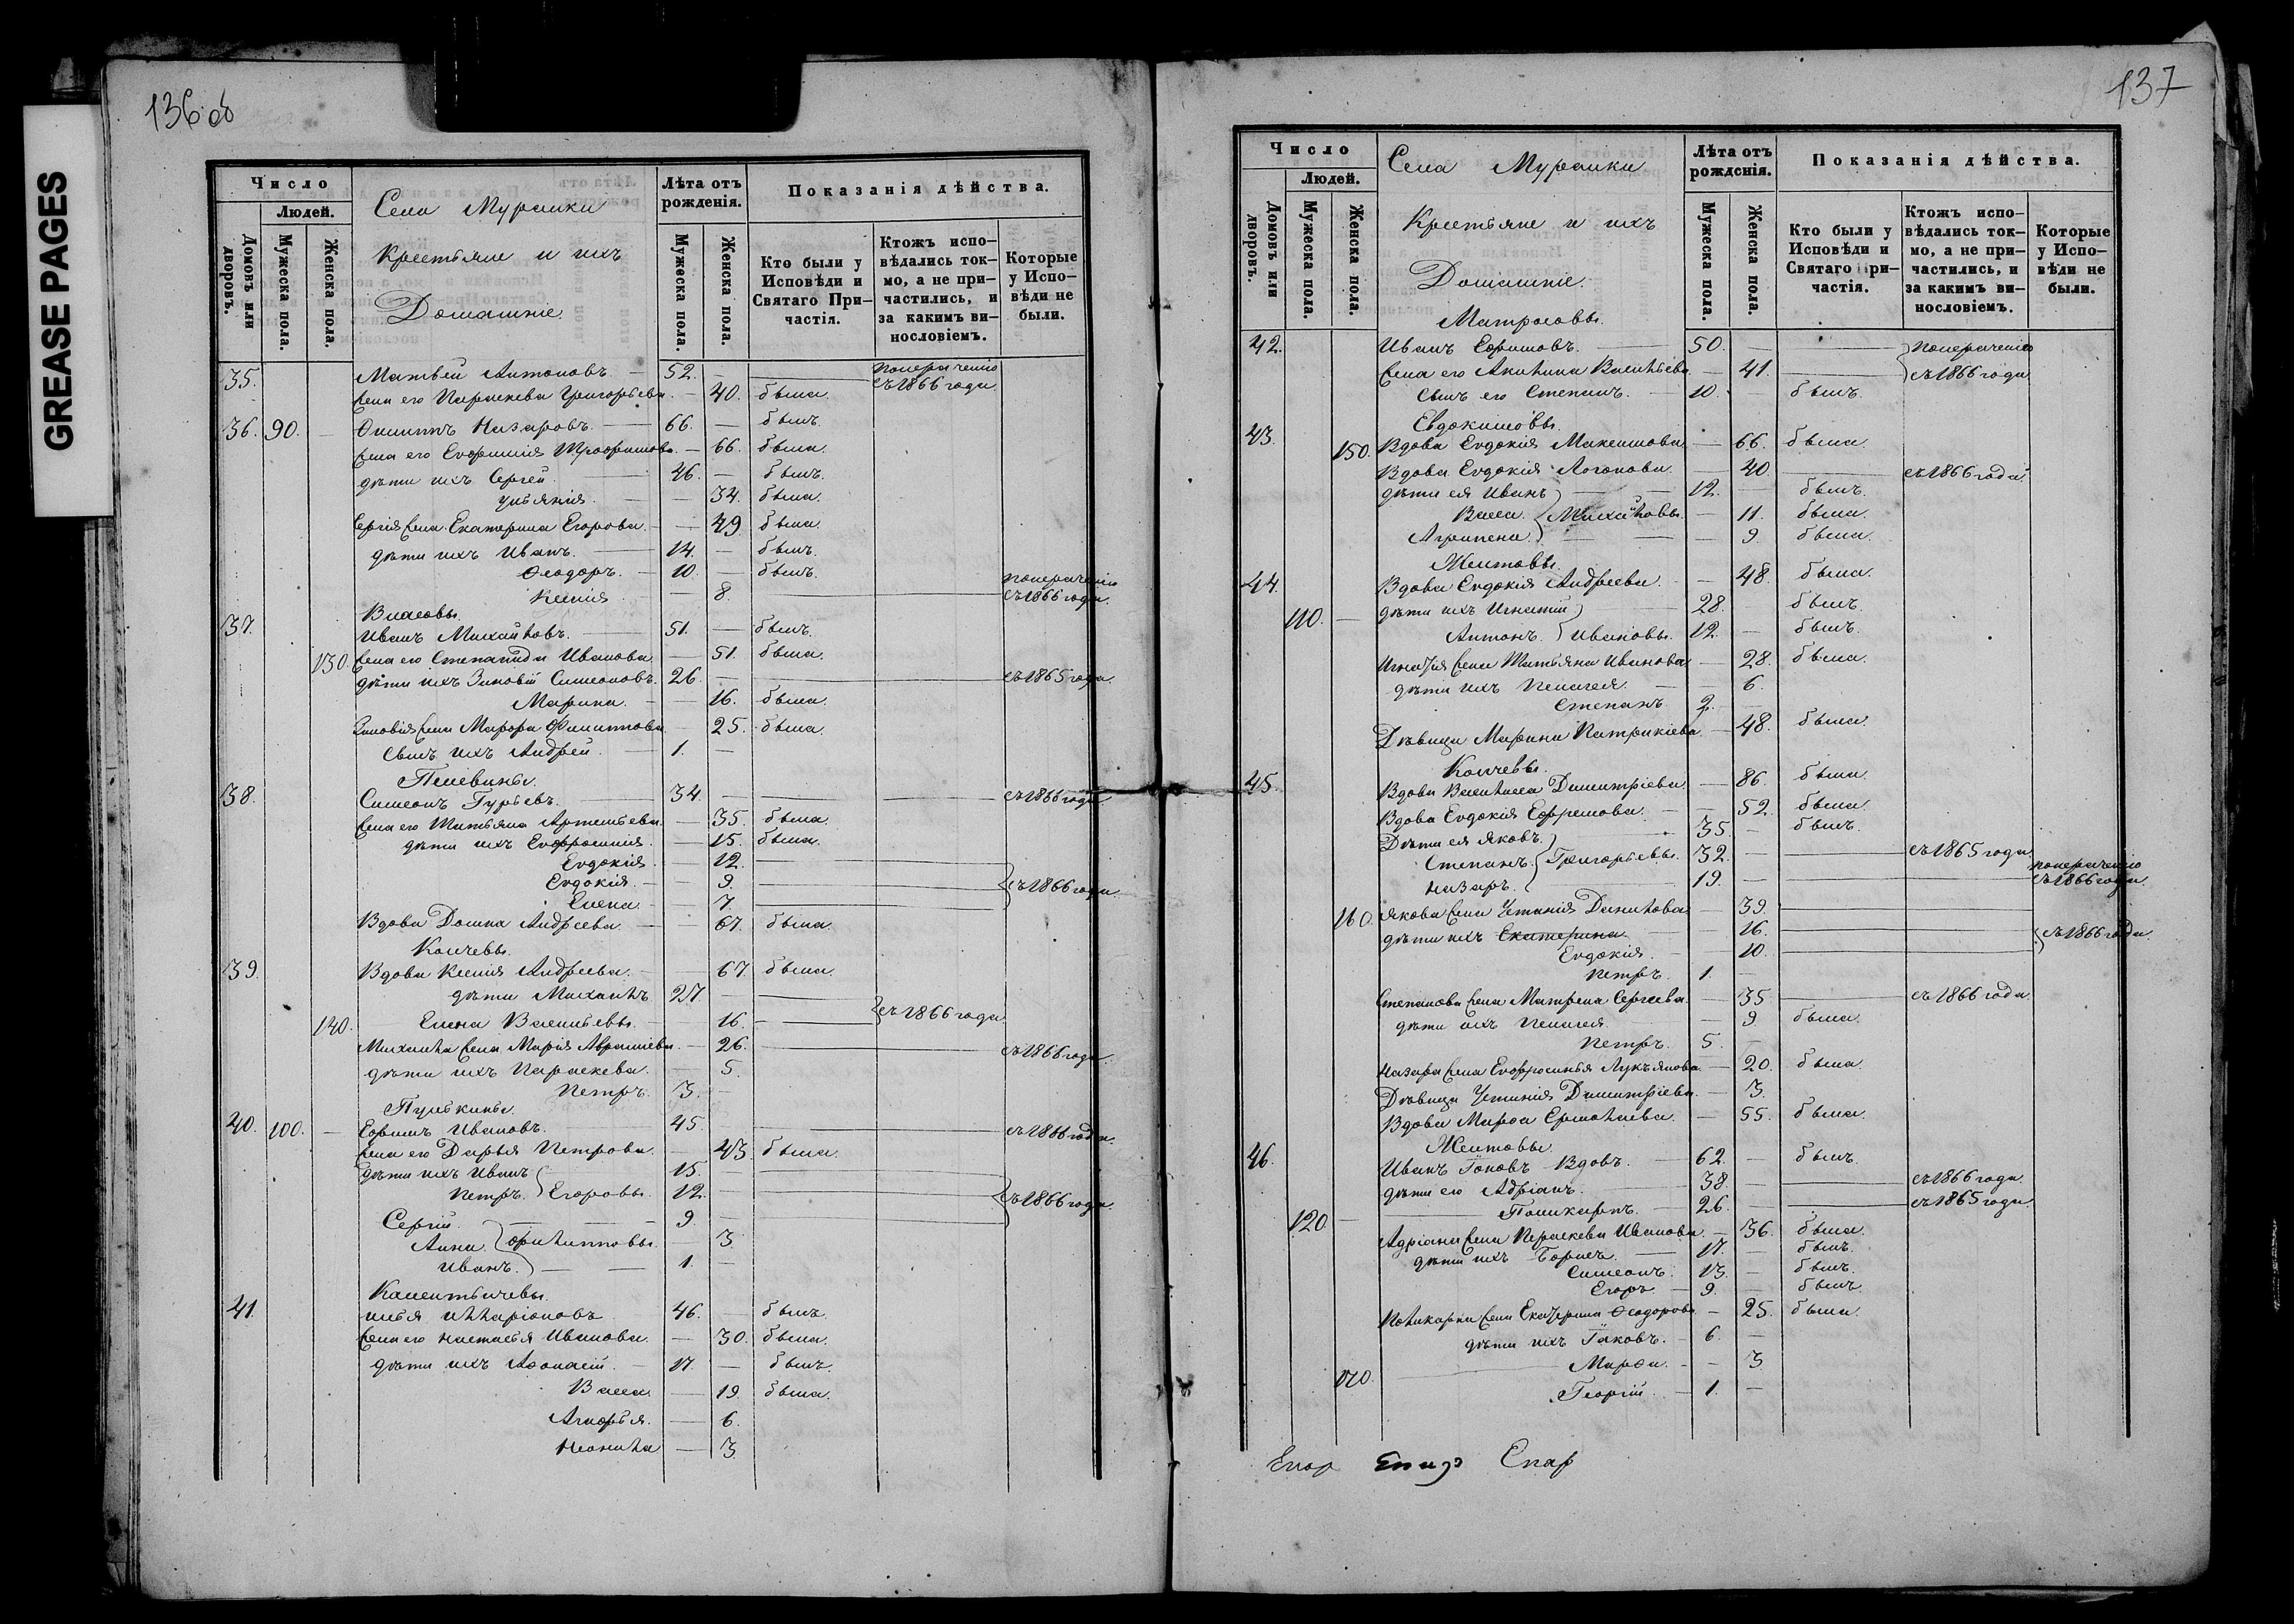 GREASE PAGES
136 об
Число
Людей.
Домовъ или дворовъ.
Мужеска пола.
Женска пола.
Села Мураики
Крестьяне и ихъ
Домашніе.
Лѣта отъ рожденія.
Мужеска пола.
Женска пола.
Показанія дѣйства.
Кто были у Исповѣди и Святаго Причастія.
Ктожъ исповѣдались токмо, а не причастились, и за какимъ винословіемъ.
Которые у Исповѣди не были.
35. Матвѣй Антоновъ. 52. понераченію
Жена его Параскева Григорьева 40. была съ 1866 года
36. 90. Филиппъ Назаровъ. 66. былъ.
Жена его Евфимія Трофимова. 66. была.
дѣти ихъ Сергѣй 46. былъ.
Ульянія. 34. была.
Сергія жена Екатерина Егорова. 49. была
дѣти ихъ Иванъ. 14. былъ.
Ѳеодоръ. 10. былъ. понераченію
Ксенія 8. съ 1866 года.
Власовы.
37. Иванъ Михайловъ. 51. былъ.
130. Жена его Степанида Иванова 51. была.
дѣти ихъ Зиновій Симеоновъ. 26. съ 1865 года.
Марина. 16. была.
Зиновія жена Марфа Филиппова 25. была.
Сынъ ихъ Андрей 1.
Пелевины.
38. Симеонъ Гурьевъ. 34. съ 1866 года
Жена его Татьяна Артемьева. 35. была.
дѣти ихъ Евфросинія. 15. была.
Евдокія 12.
Евдокія. 9. съ 1866 года
Елена 7.
Вдова Домна Андреева 67. была.
Колчевы.
39. Вдова Ксенія Андреева. 67. была.
дѣти Михаилъ 27.
140. Елена Васильевы 16. съ 1866 года.
Михаила жена Марія Авраамова. 26. съ 1866 года.
дѣти ихъ Параскева. 5.
Петръ. 3.
Пулькины.
40. 100. Ефимъ Ивановъ. 45. съ 1866 года.
Жена его Дарья Петрова. 43. была.
дѣти ихъ Иванъ 15.
Петръ. Егоровы. 12. съ 1866 года
Сергій. 9.
Анна. Филипповы. 3.
Иванъ. 1.
41. Илья Илларіоновъ 46. былъ
Жена его Настасья Иванова. 30. была.
дѣти ихъ Афонасій. 17. былъ.
Васса 19. была.
Агафья. 6.
Неонила 3.
137
Число
Людей.
Домовъ или дворовъ.
Мужеска пола.
Женска пола.
Села Мураики
Крестьяне и ихъ
Домашніе.
Лѣта отъ рожденія.
Мужеска пола.
Женска пола.
Показанія дѣйства.
Кто были у Исповѣди и Святаго Причастія.
Ктожъ исповѣдались токмо, а не причастились, и за какимъ винословіемъ.
Которые у Исповѣди не были.
Матросовы.
42. Иванъ Ефимовъ. 50. понераченію
Жена его Акилина Васильева 41. съ 1866 года
Сынъ его Степанъ. 10. былъ.
Евдокимовы.
43. 150. Вдова Евдокія Максимова 66. была.
Вдова Евдокія Логонова. 40 съ 1866 года
дѣти ея Иванъ 12. былъ.
Васса. Михайловы. 11. была.
Агрипена. 9. была.
Желтовы.
44. Вдова Евдокія Андреева 48. была.
110. дѣти ихъ Игнатій 28. былъ.
Антонъ. Ивановы. 12. былъ.
Игнатія жена Татьяна Иванова 28. была.
дѣти ихъ Пелагея. 6.
Степанъ 2.
Дѣвица Марина Патрикіева 48. была.
Колчевы.
45. Вдова Василиса Димитріева. 86. была.
Вдова Евдокія Ефремова. 52. была.
Дѣти ея Яковъ. 35 былъ.
Степанъ. Григорьевы. 32. съ 1865 года понераченію
Назаръ. 19. съ 1866 года.
160 Якова жена Устинія Данилова 39.
дѣти ихъ Екатерина 16. съ 1866 года.
Евдокія. 10.
Петръ. 1.
Степанова жена Матрена Сергѣева. 35 съ 1866 года.
дѣти ихъ Пелагея 9. была.
Петръ. 5.
Назара жена Евфросинья Лукьянова 20. была.
Дѣвица Устинія Димитріева. 3.
Вдова Марфа Ермолаева. 55. была.
Желтовы.
46. Иванъ Іаковъ Вдовъ. 62. былъ.
дѣти его Адріанъ. 38. съ 1866 года.
120. Поликарпъ. 26. съ 1865 года.
Адріана жена Параскева Иванова. 36. была.
дѣти ихъ Борисъ. 17. былъ.
Симеонъ. 13. былъ.
Егоръ 9. былъ
Поликарпа жена Екатерина Ѳеодорова 25. была.
дѣти ихъ Іаковъ. 6.
170. Марфа. 3.
Георгій. 1.